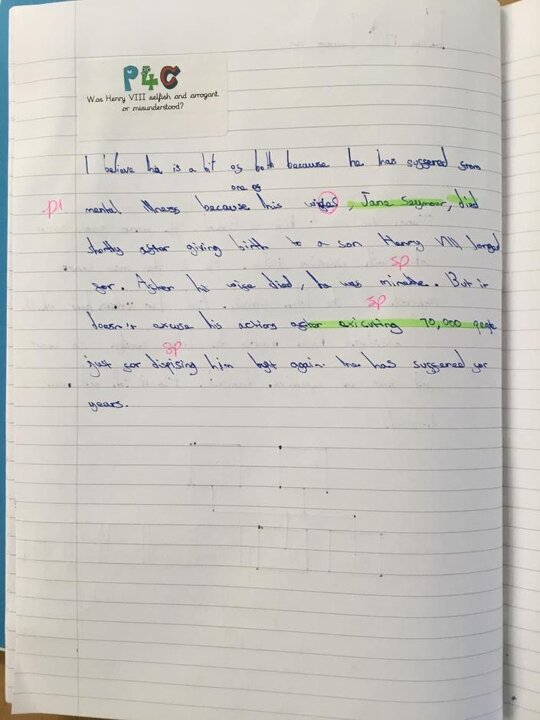 P4C
Was Henry VIII selfish and arrogant
or misunderstood?
I believe he is a bit of both because he has suffered from
one of
p1 mental illness because this wifes, Jane Seymour, died
shortly after giving birth to a son Henry VIII longed
sp
for. After his wife died, he was . But it
sp
doesn't excuse his actions after exicuting 70,000 people
sp
just for dispising him but again he has suffered for
years.